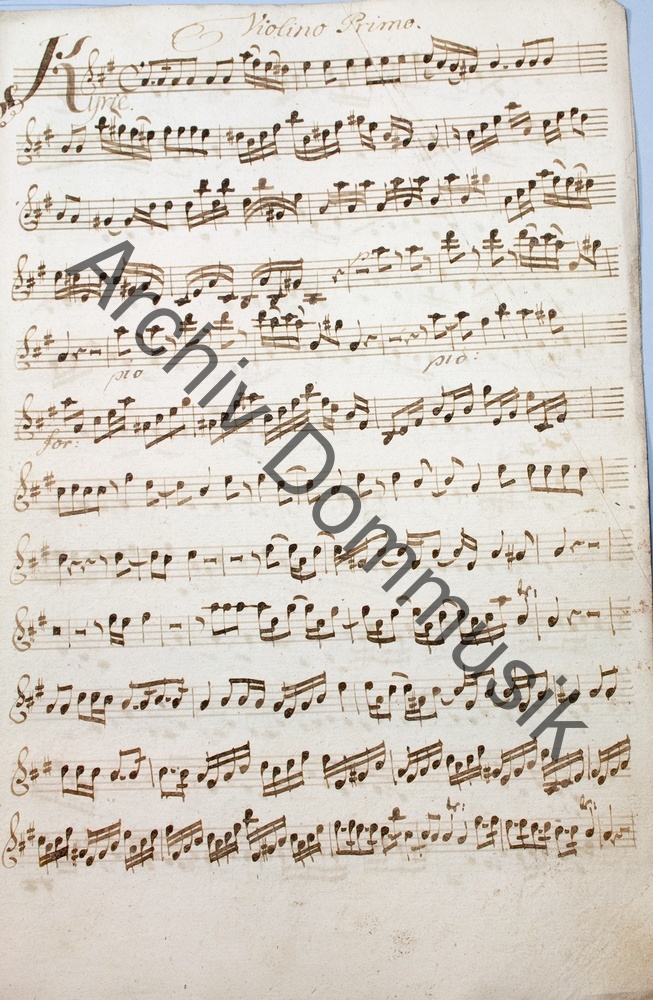 Violino Primo.
Kyrie.
pio
pio:
for:
tr:
tr:
tr:
Archiv Dommusik